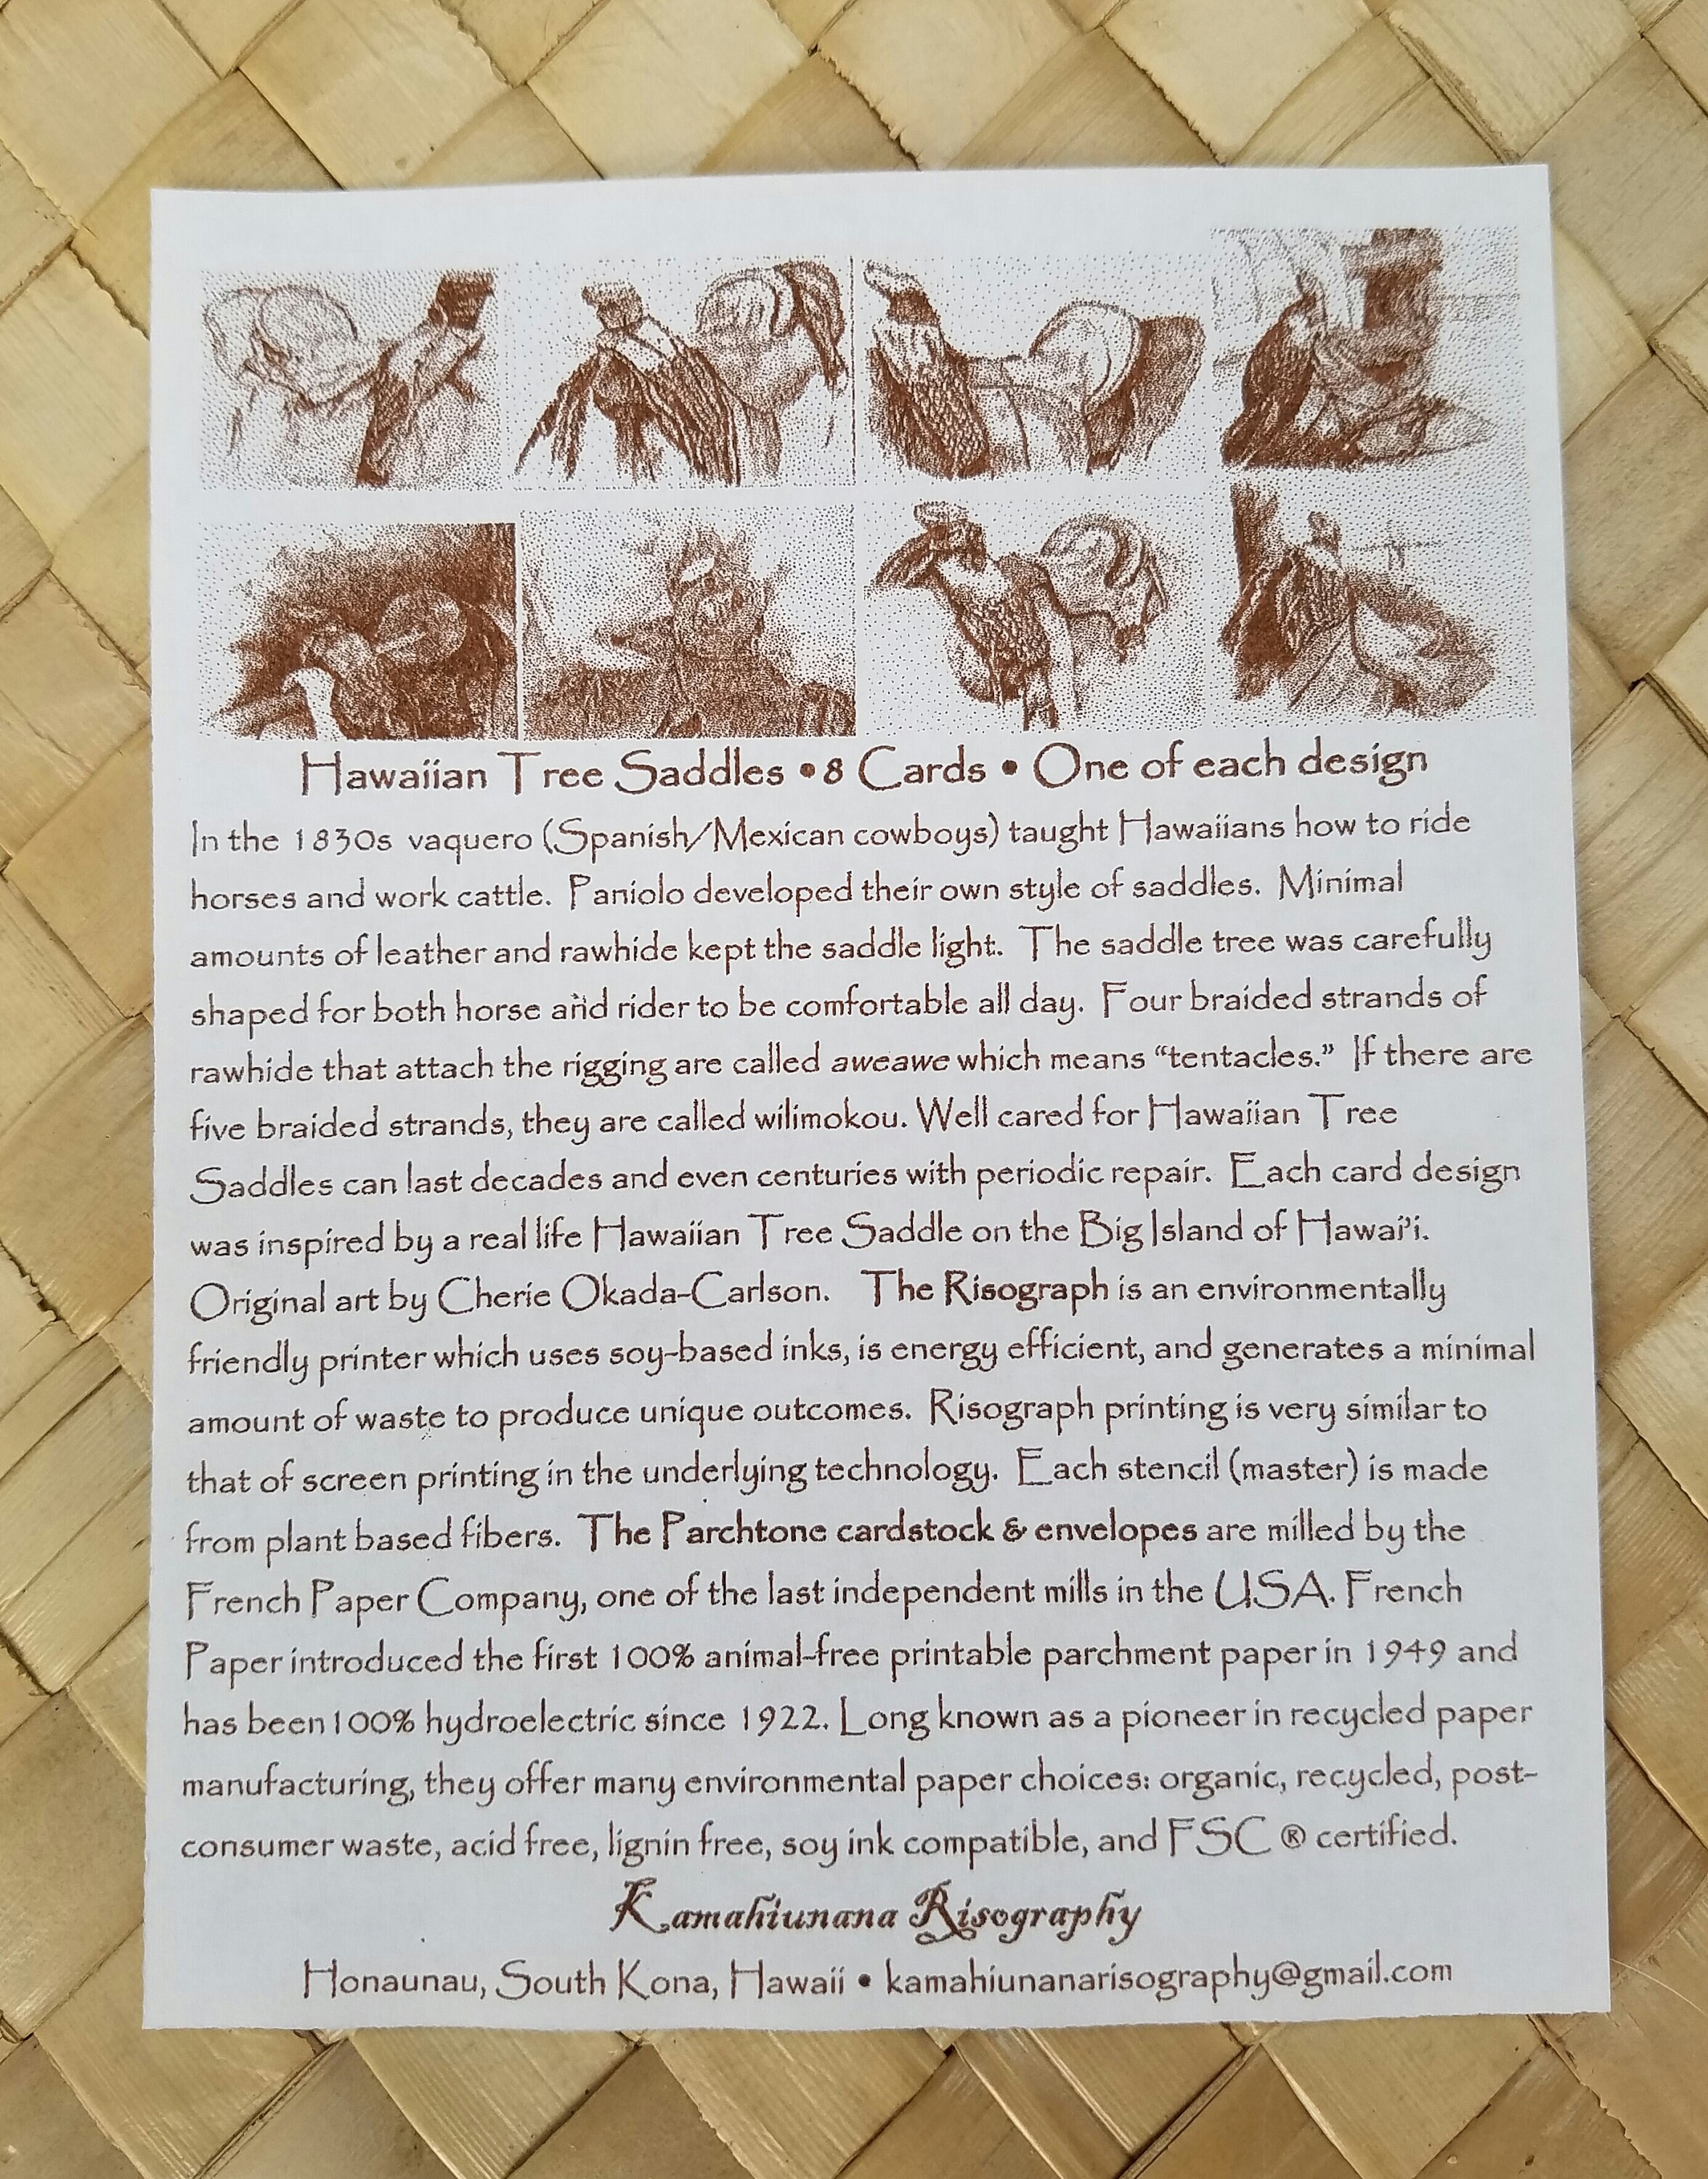 Hawaiian Tree Saddles • 8 Cards • One of each design
In the 1830s vaquero (Spanish/Mexican cowboys) taught Hawaiians how to ride
horses and work cattle. Paniolo developed their own style of saddles. Minimal
amounts of leather and rawhide kept the saddle light. The saddle tree was carefully
shaped for both horse and rider to be comfortable all day. Four braided strands of
rawhide that attach the rigging are called aweawe which means “tentacles.” If there are
five braided strands, they are called wilimokou. Well cared for Hawaiian Tree
Saddles can last decades and even centuries with periodic repair. Each card design
was inspired by a real life Hawaiian Tree Saddle on the Big Island of Hawai’i.
Original art by Cherie Okada-Carlson. The Risograph is an environmentally
friendly printer which uses soy-based inks, is energy efficient, and generates a minimal
amount of waste to produce unique outcomes. Risograph printing is very similar to
that of screen printing in the underlying technology. Each stencil (master) is made
from plant based fibers. The Parchtone cardstock & envelopes are milled by the
French Paper Company, one of the last independent mills in the USA. French
Paper introduced the first 100% animal-free printable parchment paper in 1949 and
has been 100% hydroelectric since 1922. Long known as a pioneer in recycled paper
manufacturing, they offer many environmental paper choices: organic, recycled, post-
consumer waste, acid free, lignin free, soy ink compatible, and FSC ® certified.
Kamahiunana Risography
Honaunau, South Kona, Hawaii • kamahiunanarisography@gmail.com